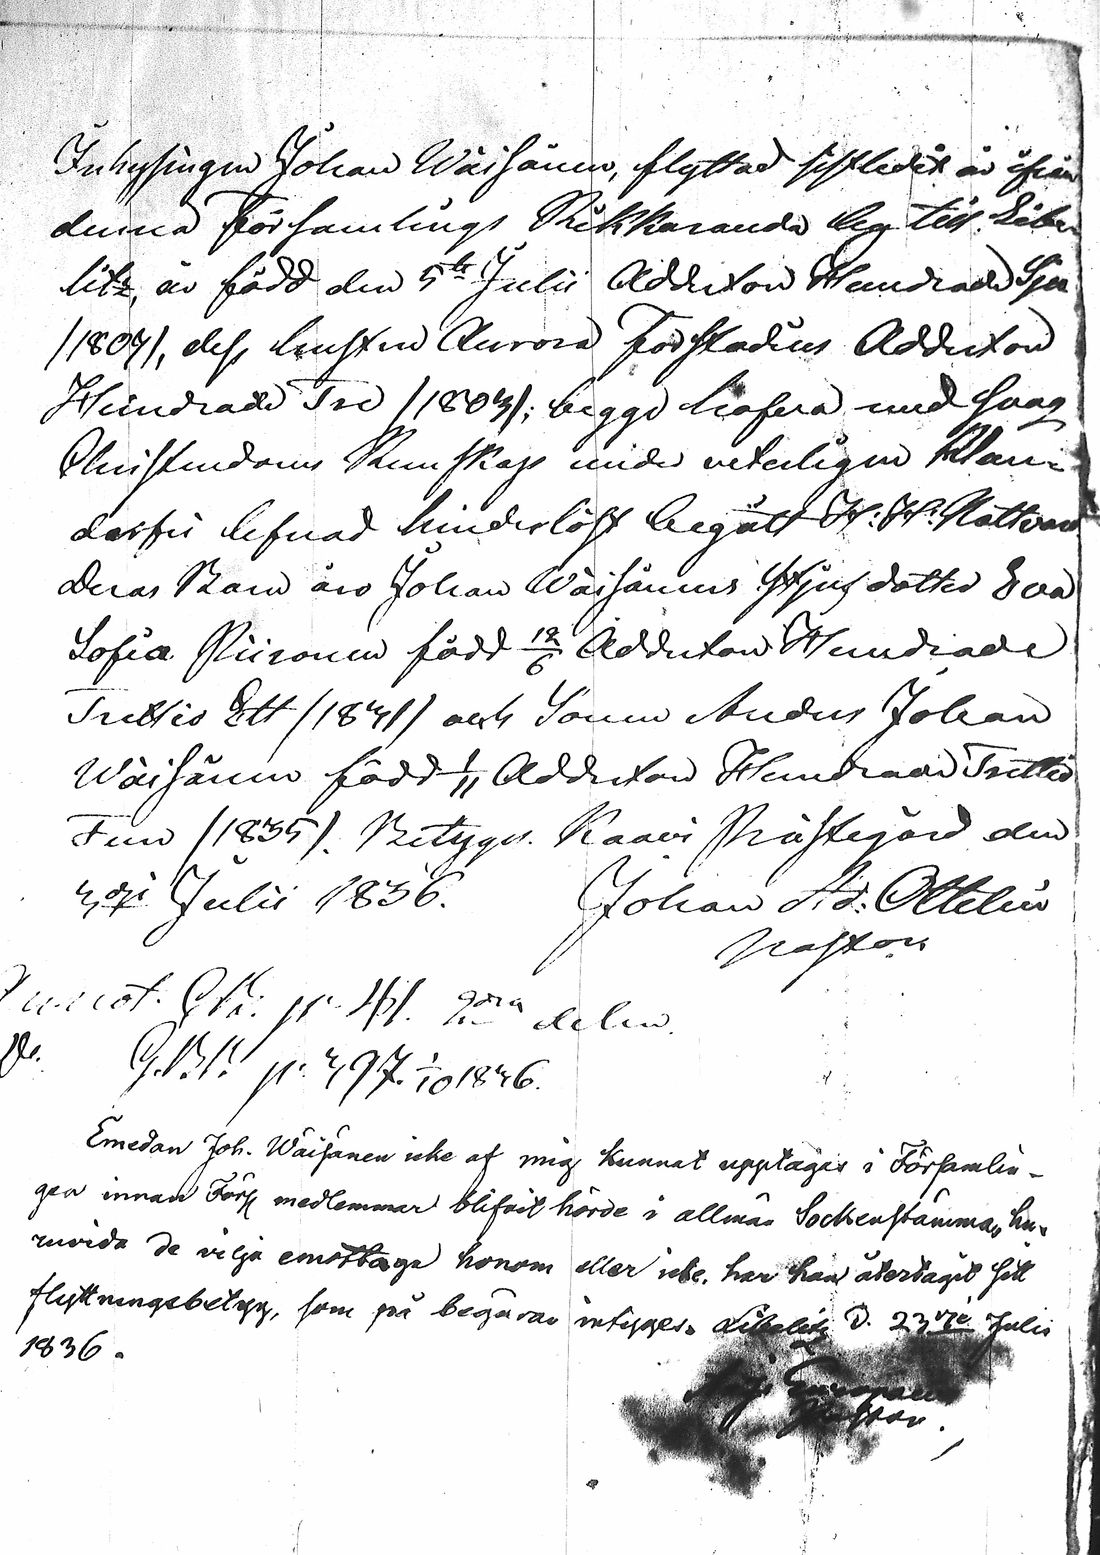 Inhysingen Johan Wäisänen, flyttad sistledit år ifrån
denna Församlings Rikkaranda by till Libe-
litz, är född den 5te Julii Adderton Hundrade Sju
/1807/, dess hustru Aurora Forstadius Adderton
Hundrade Tre /1803/; begge hafva med svag
Christendoms Kunskap under veterligen klan-
derfri lefnad hinderlöst begått H: H: Nattvard
deras Barn äro Johan Wäisänens Styfdotter Eva
Sofia Piironen född 12/6 Adderton Hundrade
Trettio Ett /1831/ och Sonen Anders Johan
Wäisänen född 1/11 Adderton Hundrade Trettio
Fem /1835/. Betygar. Kaavi Prästegård den
3dje Julii 1836. Johan Ad: Ottelin
Pastor
Annot. C.B. p. 41. 2dra delen.
C.B. p. 397. 1/10 1836.
Emedan Joh. Wäisänen icke af mig kunnat upptagas i Församlin-
gen innan Förs medlemmar blifvit hörde i allmän Sockenstämma, hu-
ruvida de vilja emottaga honom eller icke, har han återtagit sitt
flyttningsbetyg, som på begäran intygas. Libelitz d. 23dje Julii
1836.
Europaeus
Pastor.